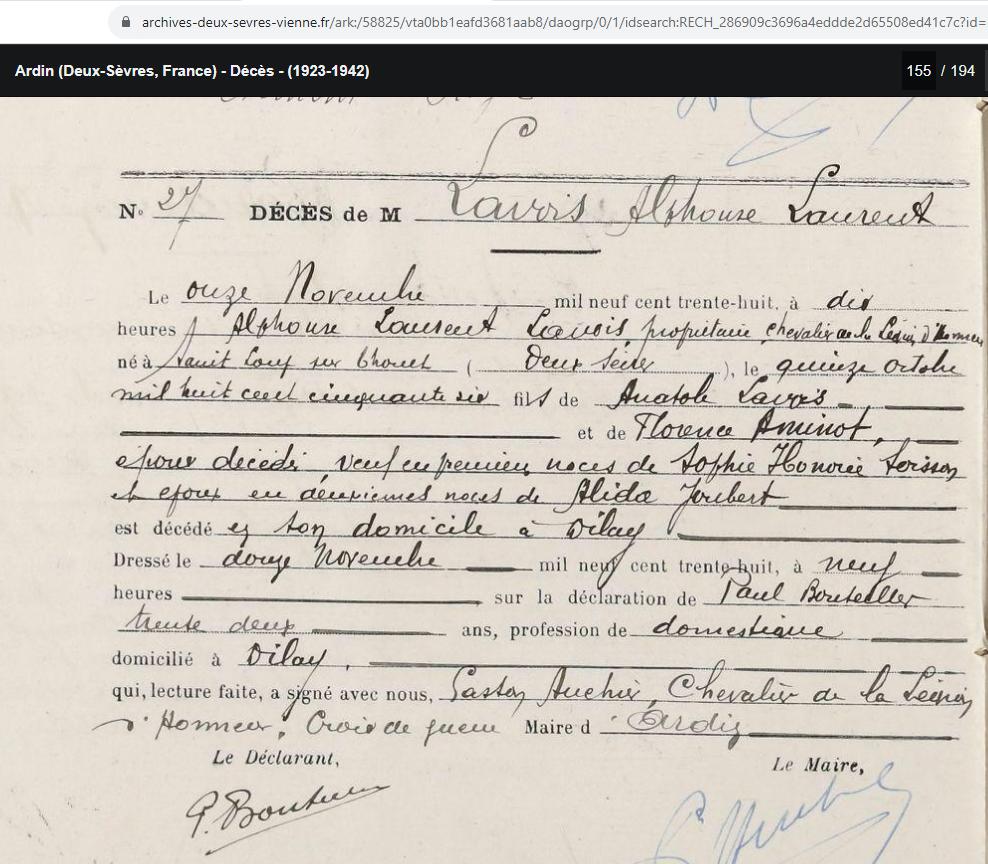 archives-deux-sevres-vienne.fr/ark:/58825/vta0bb1eafd3681aab8/daogrp/0/1/idsearch:RECH_286909c3696a4eddde2d65508ed41c7c?id=
Ardin (Deux-Sèvres, France) - Décès - (1923-1942)
155 / 194
L
N° 27 DÉCÈS de M Lavois Alphonse Laurent
Le onze Novembre mil neuf cent trente-huit, à dix
heures Alphonse Laurent Lavois, propriétaire, chevalier de la Légion d'Honneur
né à Saint Loup sur Thouet (Deux Sèvres), le quinze octobre
mil huit cent cinquante six fils de Anatole Lavois
et de Florence Aminot,
époux décédé, veuf en premières noces de Sophie Honorée
et époux en deuxièmes noces de Alida Joubert
est décédé en son domicile à Dilay
Dressé le douze Novembre mil neuf cent trente-huit, à neuf
heures sur la déclaration de Paul Bouteiller
trente deux ans, profession de domestique
domicilié à Dilay,
qui, lecture faite, a signé avec nous, Gaston Auchier, Chevalier de la Légion
d'Honneur, Croix de guerre Maire d'Ardin
Le Déclarant, Le Maire,